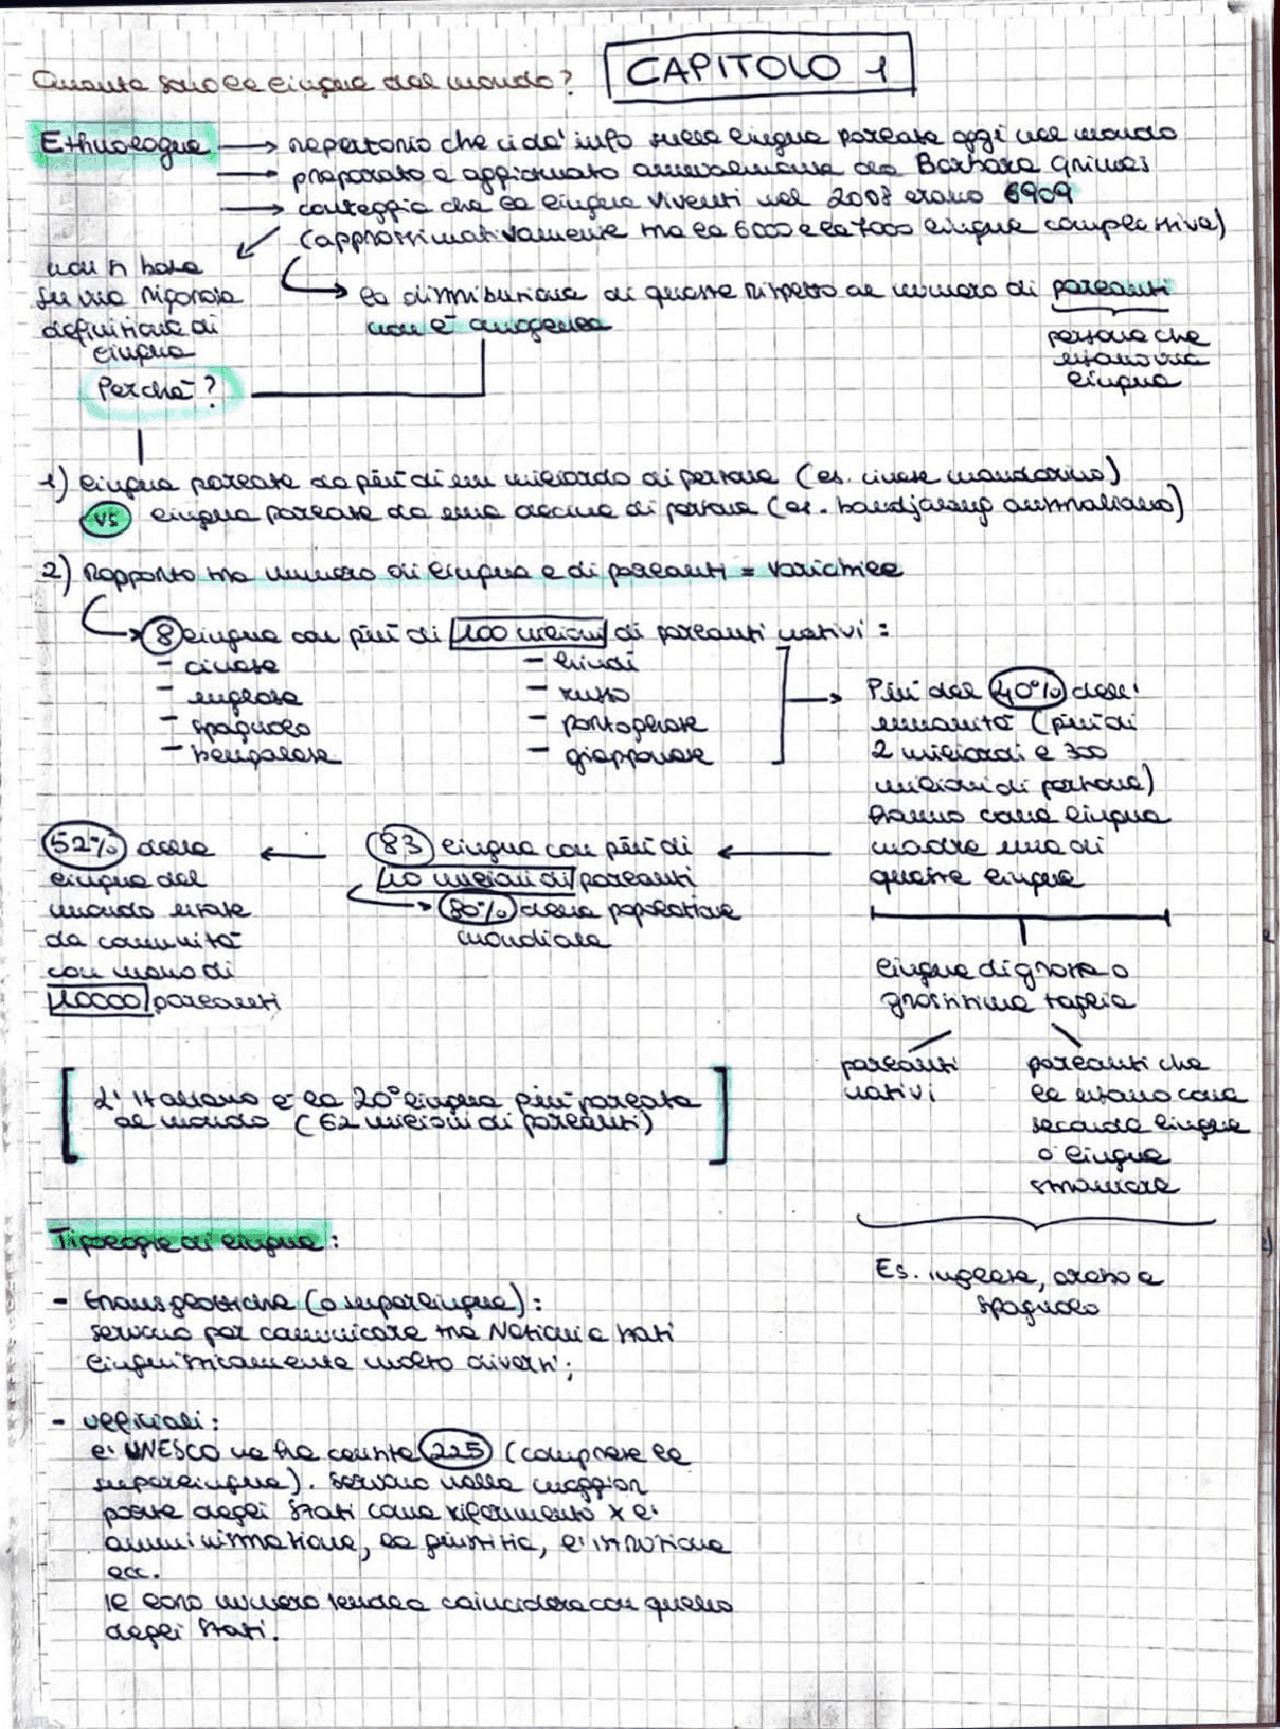 CAPITOLO 1
Quante sono le lingue del mondo?
Ethnologue → repertorio che ci da' info sulle lingue parlate oggi nel mondo
→ preparato e aggiornato annualmente da Barbara Grimes
→ conteggia che le lingue viventi nel 2008 erano 6909
(approssimativamente tra le 6000 e le 7000 lingue complessive)
non si basa
su una rigorosa
definizione di
lingua
→ la distribuzione di queste rispetto al numero di parlanti
non è omogenea
persone che
usano una
lingua
Perché?
1) lingue parlate da più di un miliardo di persone (es. cinese mandarino)
VS lingue parlate da una decina di persone (es. bandjalang australiano)
2) Rapporto tra numero di lingue e di parlanti = variabile
→ 8 lingue con più di 100 milioni di parlanti nativi =
- cinese
- inglese
- spagnolo
- bengalese
- hindi
- russo
- portoghese
- giapponese
→ Più del 40% dell'
umanità (più di
2 miliardi e 300
milioni di persone)
hanno come lingua
madre una di
queste lingue
← 83 lingue con più di
10 milioni di parlanti
→ 80% della popolazione
mondiale
← 52% delle
lingue del
mondo usate
da comunità
con meno di
10000 parlanti
lingue di grossa o
grossissima taglia
parlanti
nativi
parlanti che
le usano come
seconda lingua
o lingua
straniera
Es. inglese, arabo e
spagnolo
[L'italiano è la 20° lingua più parlata
al mondo (62 milioni di parlanti)]
Tipologie di lingue:
- transglossiche (o superlingue):
servono per comunicare tra Nazioni e Stati
linguisticamente molto diversi;
- ufficiali:
l'UNESCO ne ha contate 225 (comprese le
superlingue). Servono nella maggior
parte degli Stati come riferimento x l'
amministrazione, la giustizia, l'istruzione
ecc.
Il loro numero tende a coincidere con quello
degli Stati.